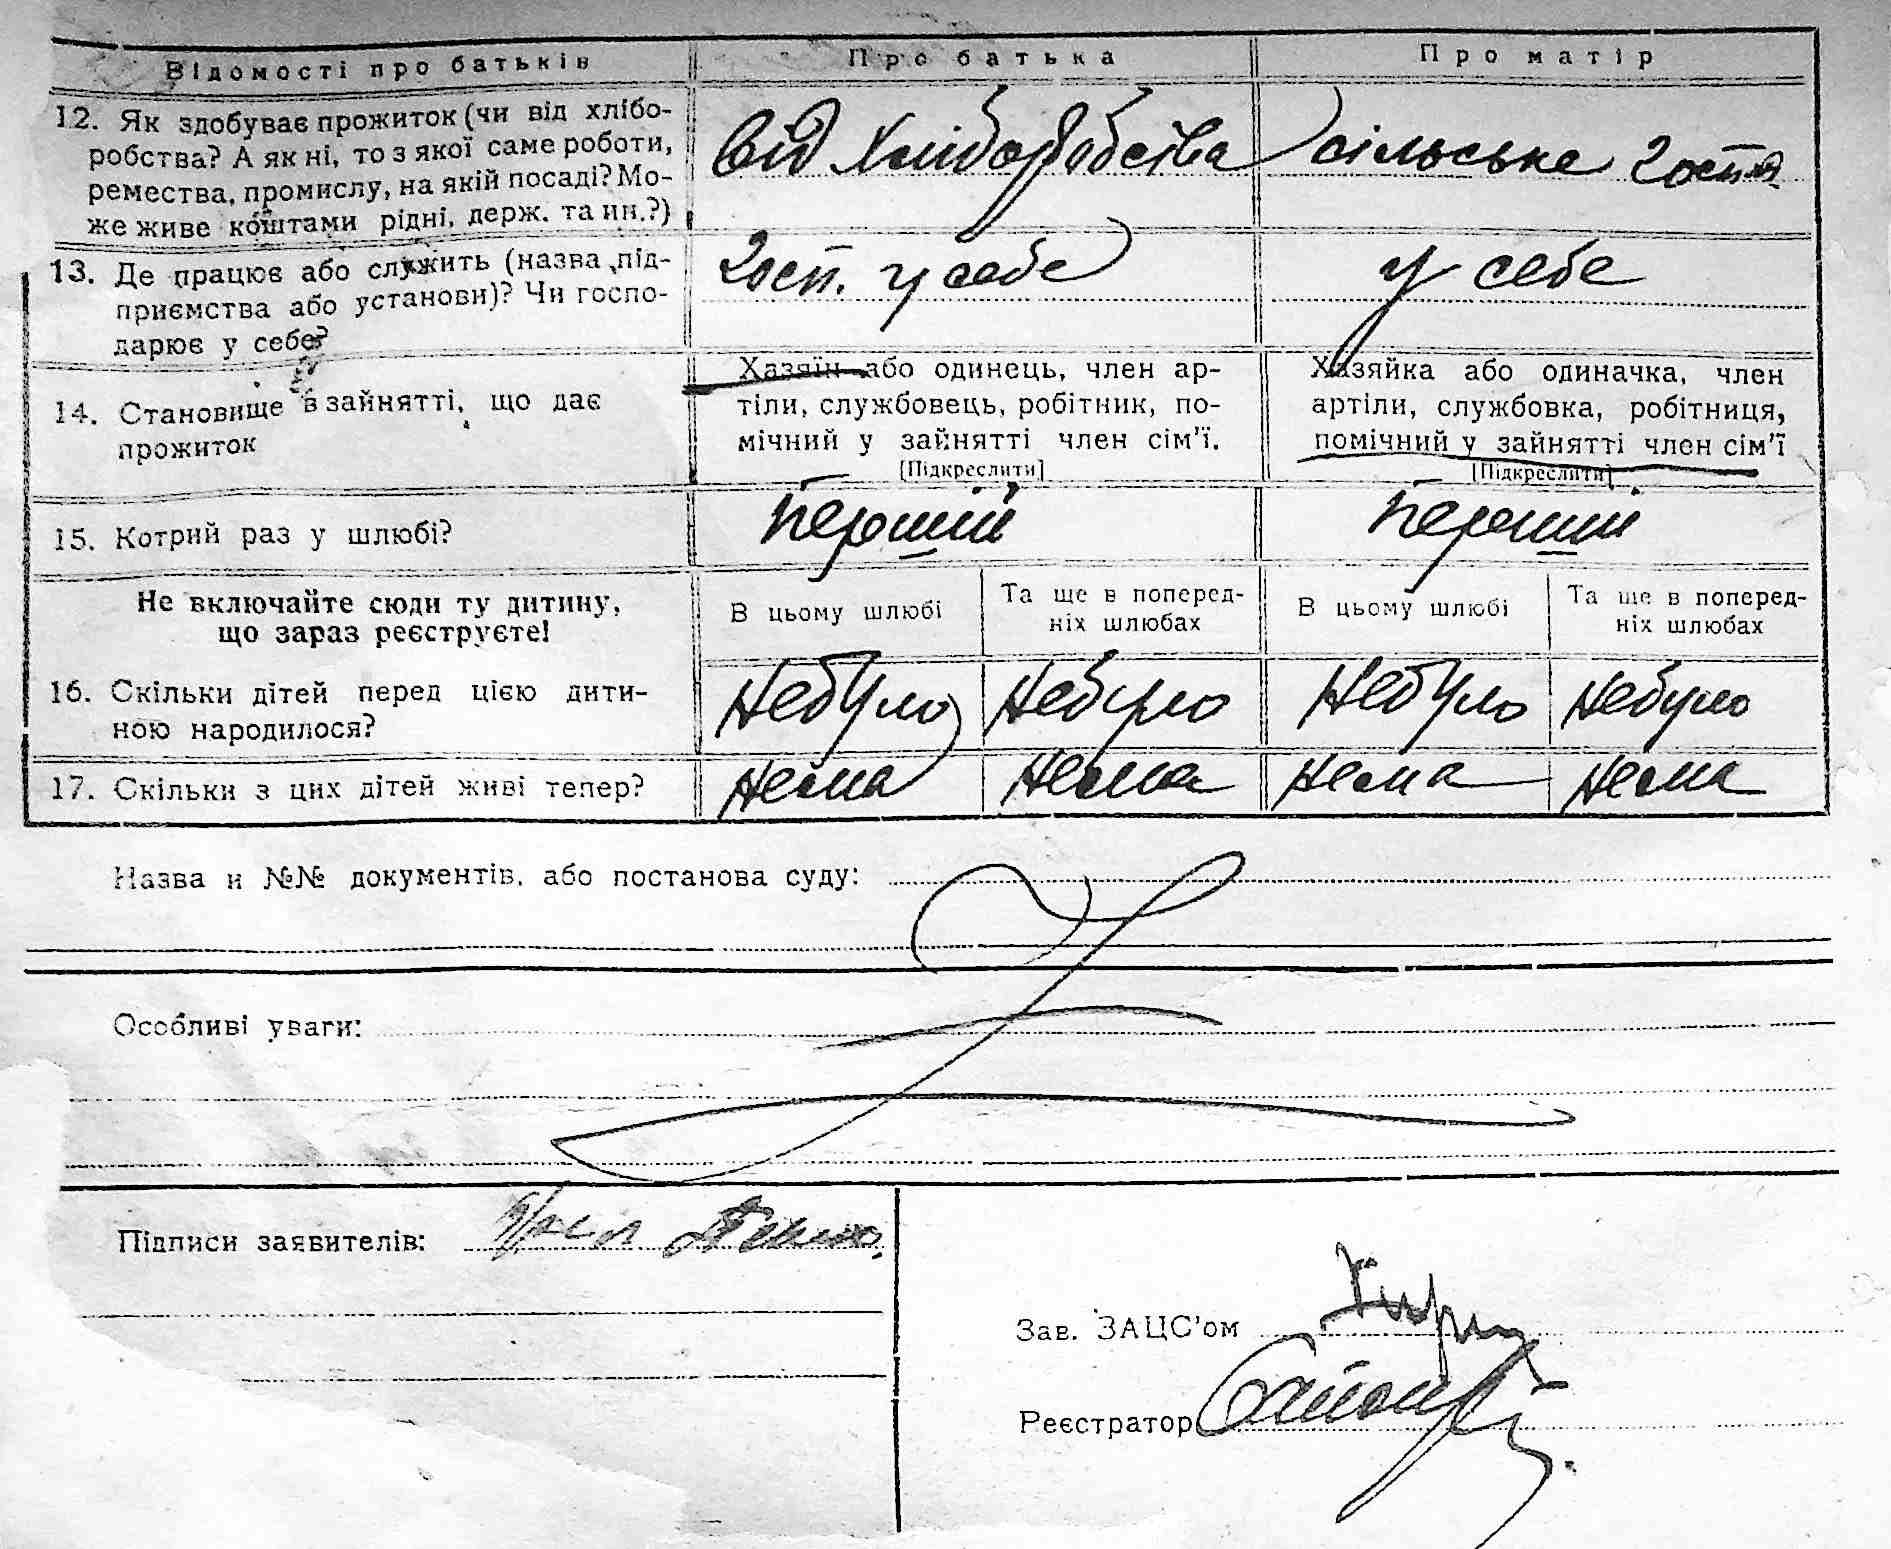 Відомості про батьків Про батька Про матір
12. Як здобуває прожиток (чи від хлібо-
робства? А як ні, то з якої саме роботи,
ремества, промислу, на якій посаді? Мо-
же живе коштами рідні, держ. та ин.?)
від хліборобства сільське госп
13. Де працює або служить (назва під-
приємства або установи)? Чи госпо-
дарює у себе?
госп. у себе у себе
14. Становище в зайнятті, що дає
прожиток
Хазяїн або одинець, член ар-
тіли, службовець, робітник, по-
мічний у зайнятті член сім'ї.
[Підкреслити]
Хазяйка або одиначка, член
артіли, службовка, робітниця,
помічний у зайнятті член сім'ї
[Підкреслити]
15. Котрий раз у шлюбі? Перший Перший
Не включайте сюди ту дитину,
що зараз реєструєте!
В цьому шлюбі
Та ще в поперед-
ніх шлюбах
В цьому шлюбі
Та ще в поперед-
ніх шлюбах
16. Скільки дітей перед цією дити-
ною народилося?
Небуло Небуло Небуло Небуло
17. Скільки з цих дітей живі тепер? Нема Нема Нема Нема
Назва и №№ документів, або постанова суду:
Особливі уваги:
Підписи заявителів:
Зав. ЗАЦС'ом
Реєстратор